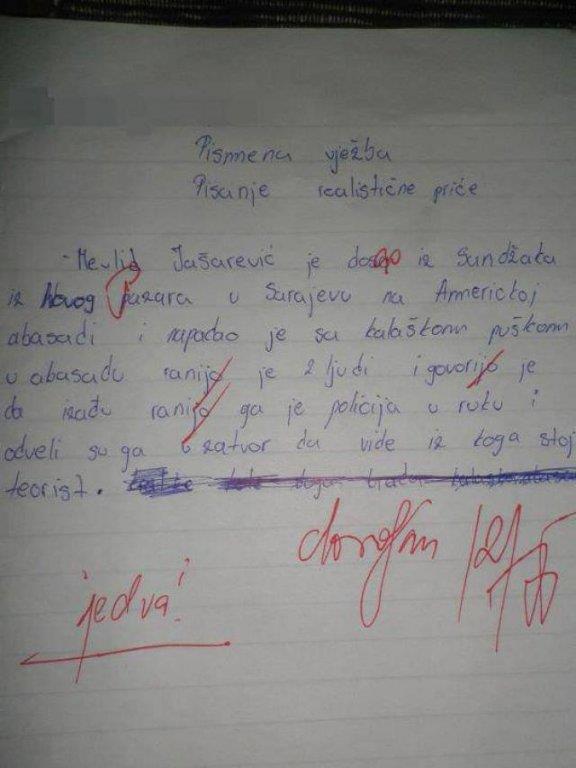 Pismena vježba
Pisanje realistične priče
Mevlid Jašarević je došao iz Sandžaka
iz Novog pazara u Sarajevu na Američkoj
abasadi i napadao je sa kalaškom puškom
u abasadu ranijo je 2 ljudi i govorijo je
da izađu ranijo ga je policija u ruku i
odveli su ga u zatvor da vide iz koga stoj
teorist.
dovoljan /2/
jedva!